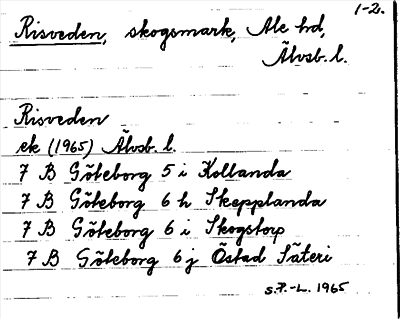 1-2.
Risveden, skogsmark, Ale hd,
Älvsb. l.
Risveden
ek (1965) Älvsb. l.
7 B Göteborg 5 i Kollanda
7 B Göteborg 6 h Skepplanda
7 B Göteborg 6 i Skogstorp
7 B Göteborg 6 j Östad Säteri
S.F.-L. 1965